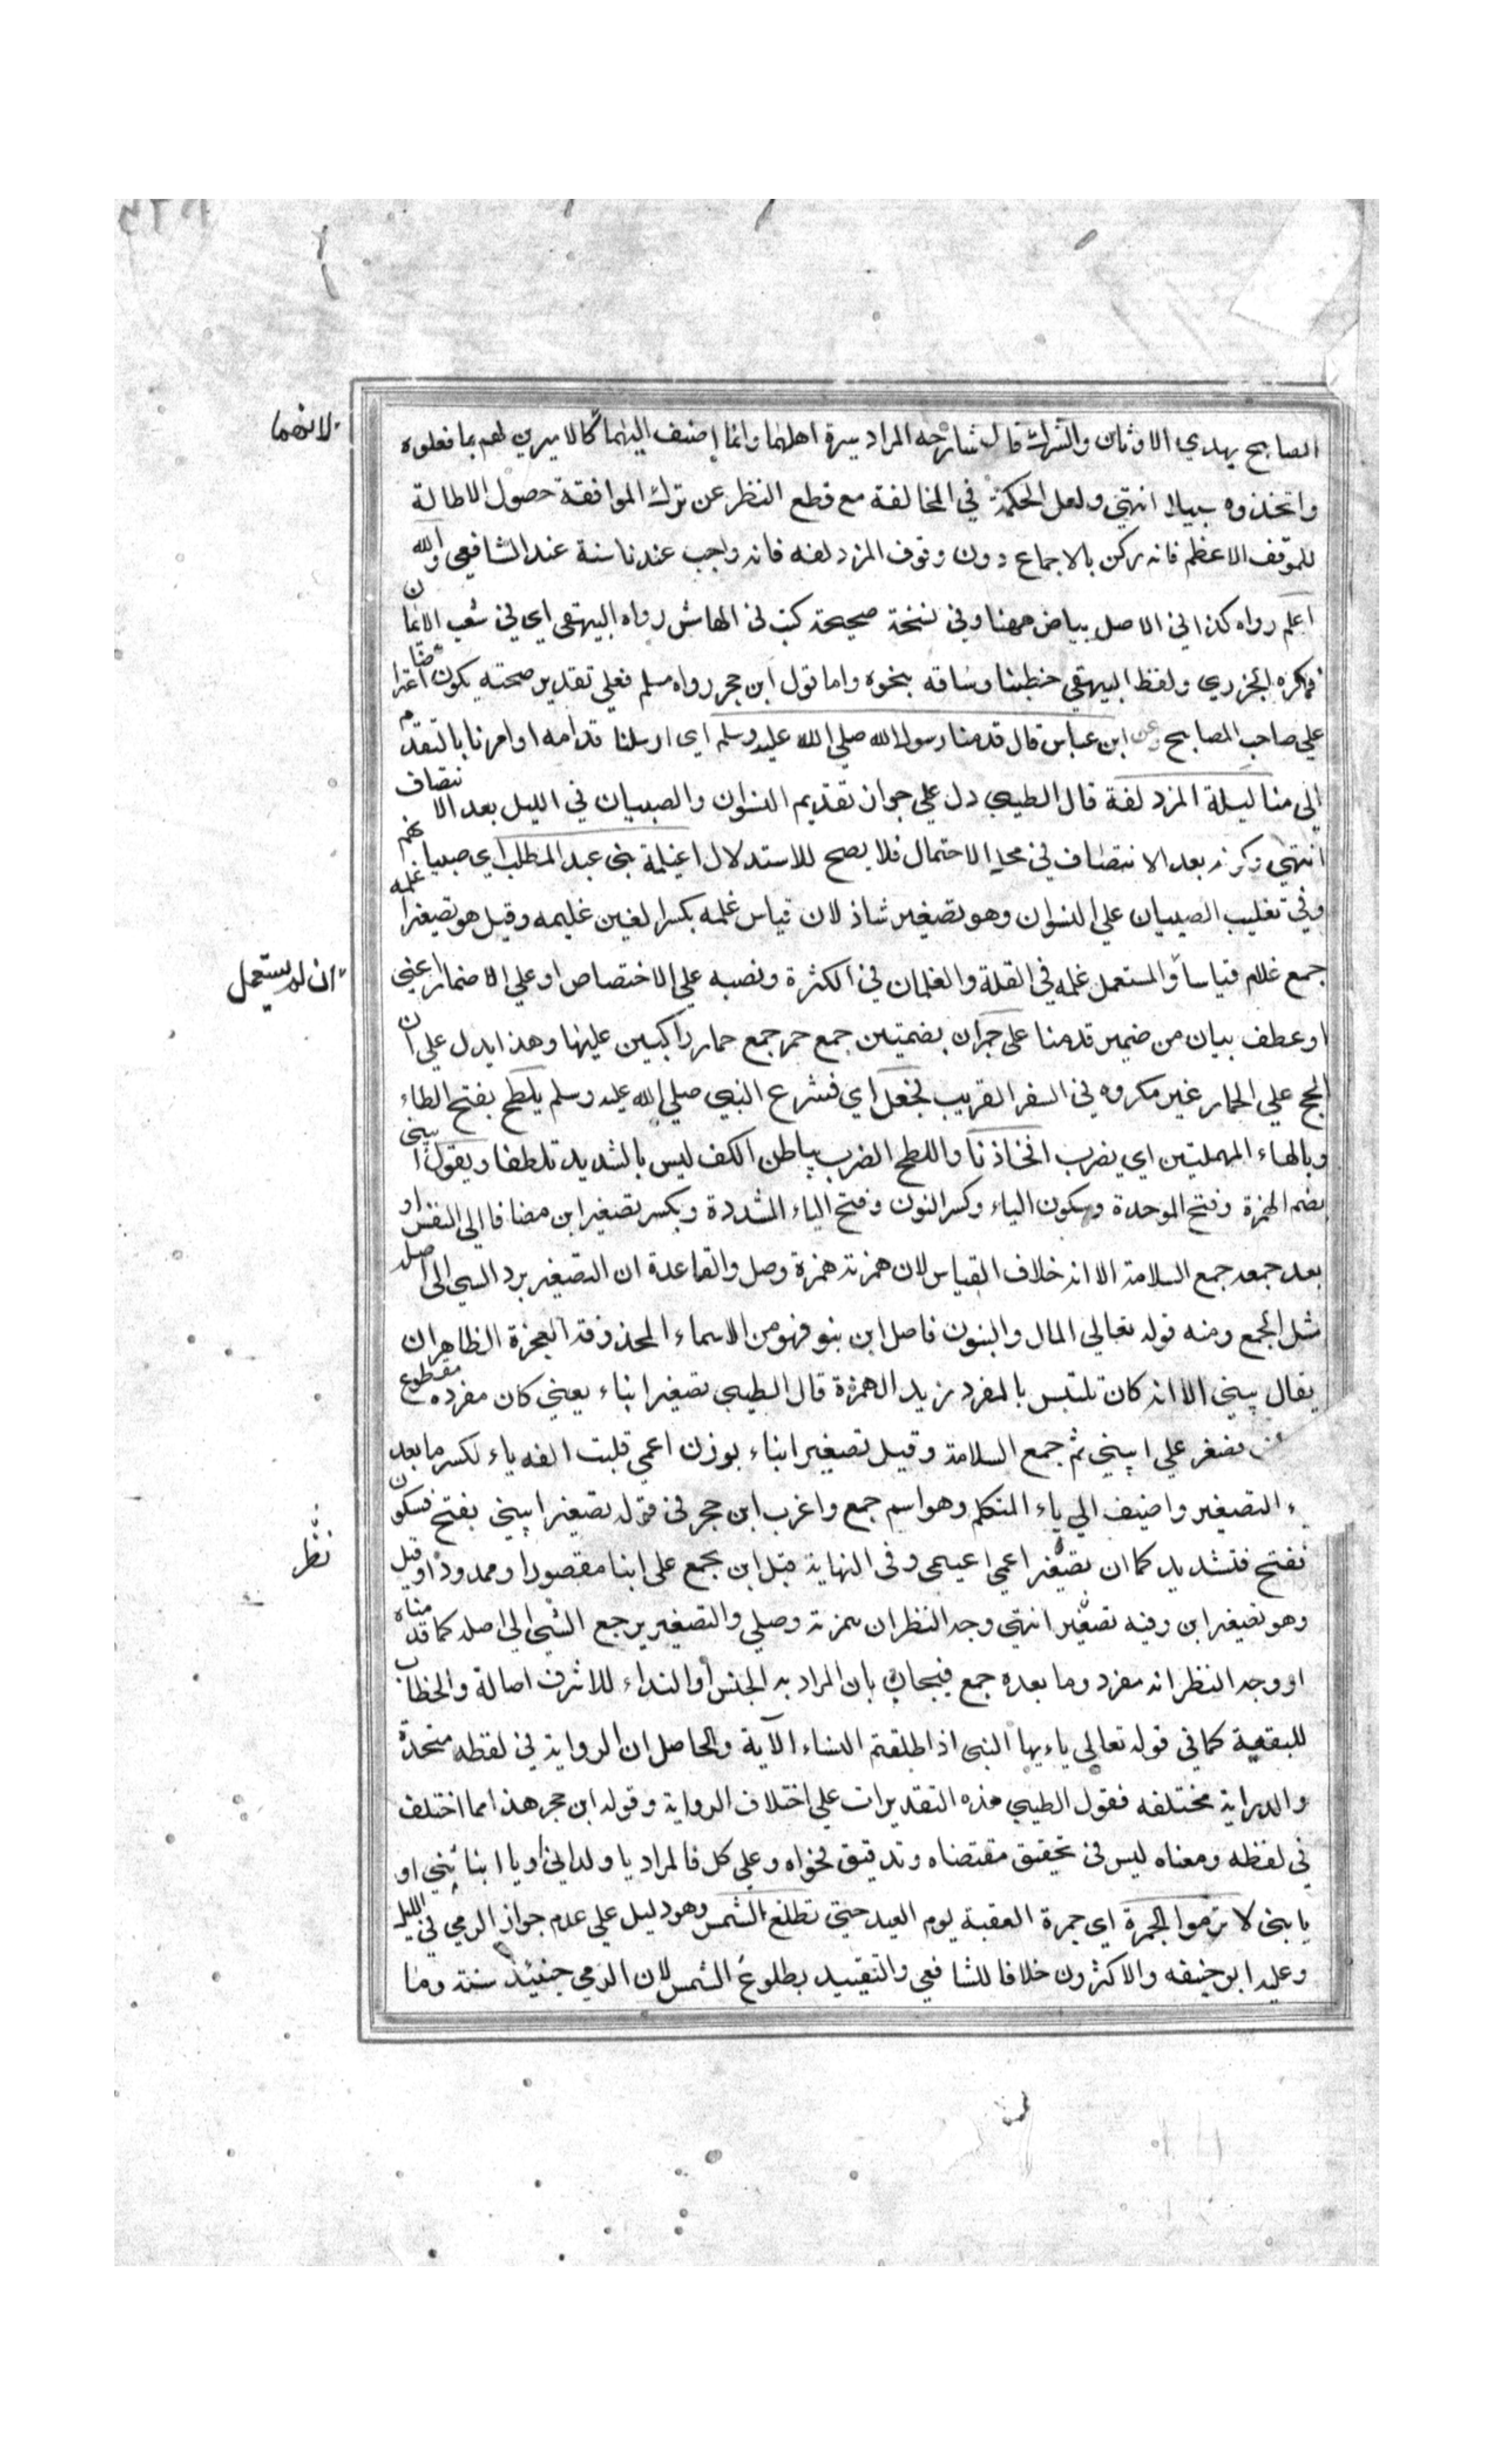 المصابيح بهدي الاوثان والشرك قال شارحه المراد سيرة اهلهما وانما اضيف اليهما كالاميرين لهم بما فعلوه
لانهما
واتخذوه سبيلا انتهى ولعل الحكمة في المخالفة مع قطع النظر عن ترك الموافقة حصول الاطالة
للموقف الاعظم فانه ركن بالاجماع دون وقوف المزدلفه فانه واجب عندنا سنة عند الشافعي والله
اعلم رواه كذا في الاصل بياض ههنا وفي نسخة صحيحة كتب في الهامش رواه البيهقي اي في شعب الايمان
ذكره الجزري ولفظ البيهقي خطبنا وساقه بنحوه واما قول ابن حجر رواه مسلم فعلي تقدير صحته يكون اعتراضا
علي صاحب المصابيح وعن ابن عباس قال قدمنا رسول الله صلي الله عليه وسلم اي ارسلنا قدامه او امرنا بالتقدم
الى منا ليلة المزدلفة قال الطيبي دل علي جواز تقديم النسوان والصبيان في الليل بعد الانتصاف
انتهى وكونه بعد الانتصاف في محل الاحتمال فلا يصح للاستدلال اغيلمة بني عبد المطلب اي صبيانهم
وفي تغليب الصبيان علي النسوان وهو تصغير شاذ لان قياس غلمه بكسر الغين غليمه وقيل هو تصغير اغلمه
جمع غلام قياسا والمستعمل غلمه في القلة والغلمان في الكثرة ونصبه علي الاختصاص او علي الاضمار اعني
ان لم يستعمل
او عطف بيان من ضمير قدمنا على حمرات بضمتين جمع حمر جمع حمار راكبين عليها وهذا يدل علي ان
الحج علي الحمار غير مكروه في السفر القريب فجعل اي فشرع النبي صلي الله عليه وسلم يلطح بفتح الطاء
وبالهاء المهملتين اي يضرب افخاذنا واللطح الضرب بباطن الكف ليس بالشديد تلطفا ويقول ابيني
بضم الهمزة وفتح الموحدة وسكون الياء وكسر النون وفتح الياء المشددة وبكسر تصغير ابن مضافا الى النفس او
بعد جمعه جمع السلامة الا انه خلاف القياس لان همزته همزة وصل والقاعدة ان التصغير يرد الشي الى اصله
مثل الجمع ومنه قوله تعالي المال والبنون فاصل ابن بنو فهو من الاسماء المحذوفة العجزة الظاهر ان
يقال بنيني الا انه كان تلتبس بالمفرد نزيد الهمزة قال الطيبي تصغير ابناء يعني كان مفرده مقطوع
تصغر علي ابيني ثم جمع السلامة وقيل تصغير ابناء بوزن اعمى قلبت الفه ياء لكسر ما بعد
التصغير واضيف الي ياء المتكلم وهو اسم جمع واغرب ابن حجر في قوله تصغير ابيني بفتح فسكون
نظر
ففتح فتشديد كما ان تصغير اعمي اعيمى وفي النهاية قيل ابن يجمع على ابنا مقصورا وممدودا وقيل
وهو تصغير ابن وفيه تصغير انتهى وجه النظر ان همزته وصلي والتصغير يرجع الشى الى اصله كما قدمناه
او وجه النظر انه مفرد وما بعده جمع فيجاب بان المراد به الجنس أو النداء للاشرف اصالة والخطاب
للبقية كما في قوله تعالي ياءيها النبي اذا طلقتم النساء الآية والحاصل ان الرواية في لفظه متحدة
والدراية مختلفه فقول الطيبي هذه التقديرات علي اختلاف الرواية وقوله ابن حجر هذا مما اختلف
في لفظه ومعناه ليس في تحقيق مقتضاه وتدقيق فحواه وعلي كل فالمراد يا ولداني او يا ابنا بني او
يا بني لا ترموا الجمرة اي جمرة العقبة يوم العيد حتي تطلع الشمس وهو دليل علي عدم جواز الرمي في الليل
وعليه ابو حنيفه والاكثرون خلافا للشافعي والتقييد بطلوع الشمس لان الرمي حينئذ سنة وما